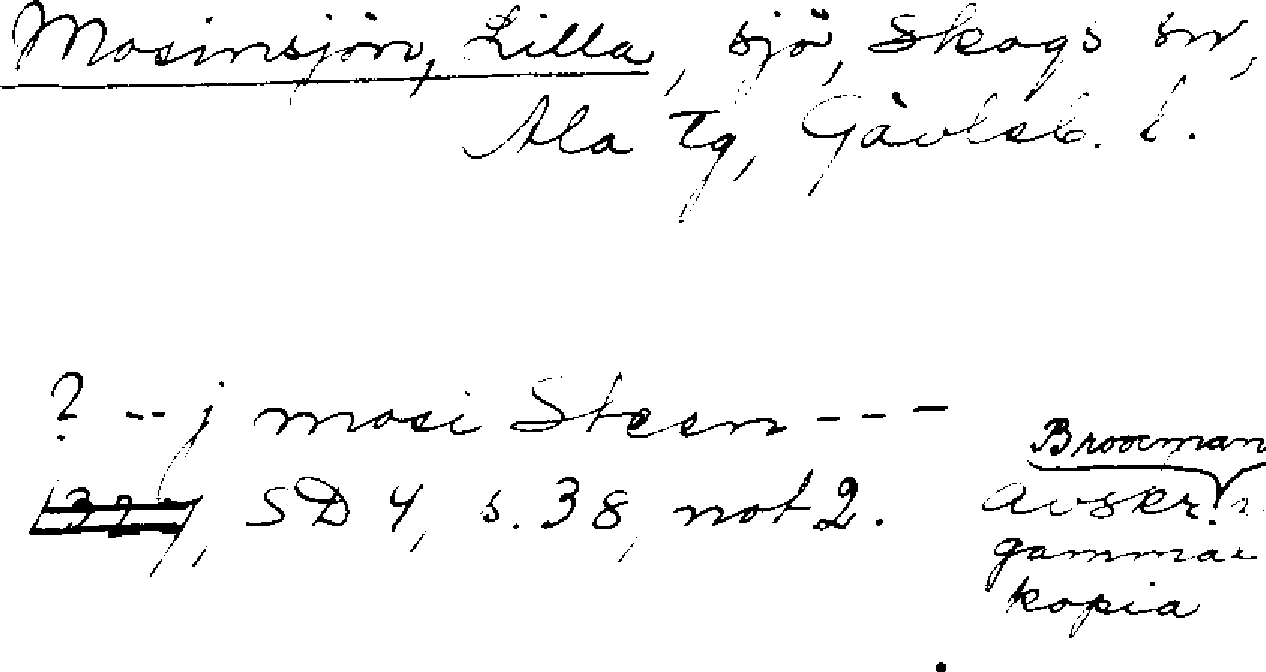 Mosinsjön, Lilla, sjö, Skogs sn,
Ala Tg, Gävleb. l.
? -- j mosi Steen ---
SD 4, s. 38, not 2.
Brooman
avskr.
gammal
kopia